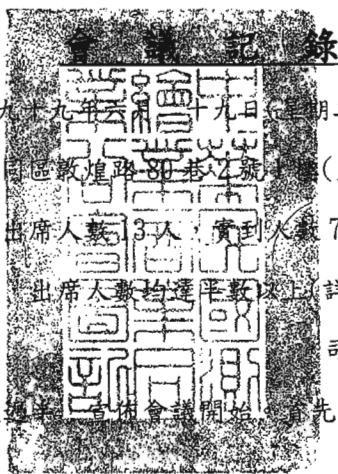 會議記錄
九十九年六月 十九日(星期
同區敦煌路80巷2號 樓(
出席人數13人，實到人數7
出席人數均達半數以上(詳
過半，宣佈會議開始。首先
中華民國測
繪業商業同